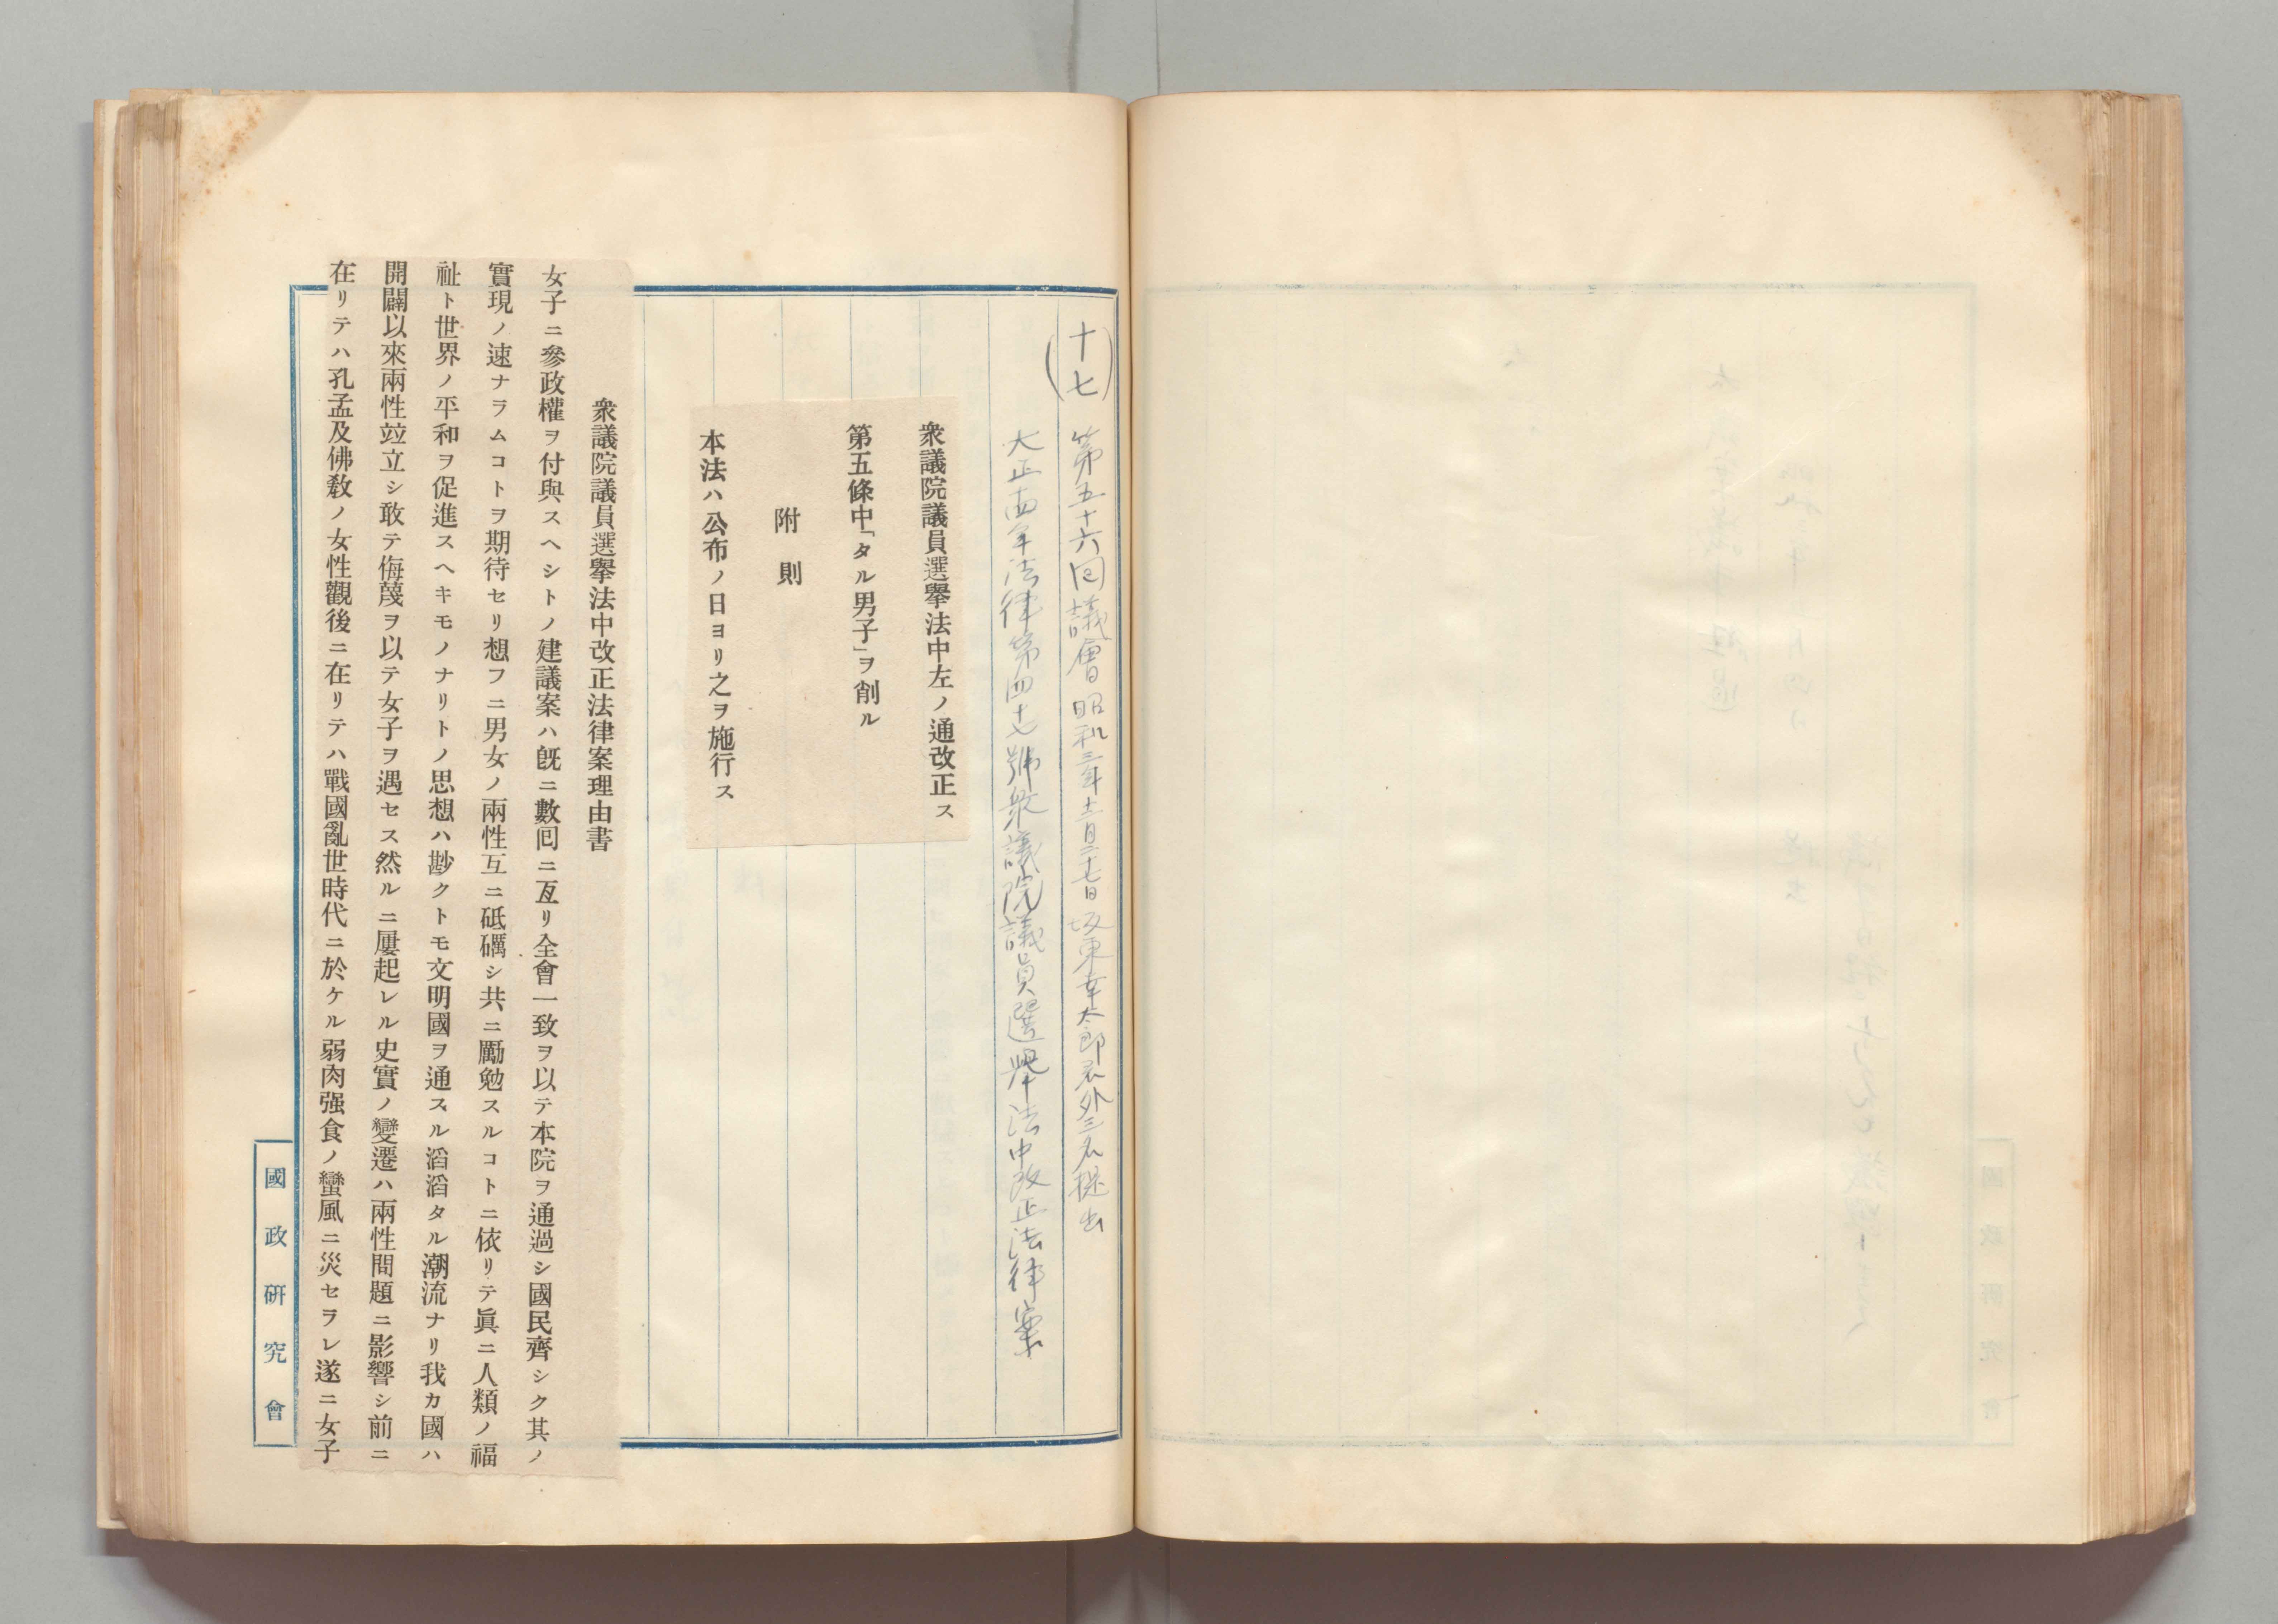 (十七)
第五十六回議會 昭和三年十二月二十七日 坂東幸太郎君外三名提出
大正十四年法律第四十七號衆議院議員選擧法中改正法律案
衆議院議員選擧法中左ノ通改正ス
第五條中「タル男子」ヲ削ル
附則
本法ハ公布ノ日ヨリ之ヲ施行ス
衆議院議員選擧法中改正法律案理由書
女子ニ參政權ヲ付與スヘシトノ建議案ハ旣ニ數囘ニ亙リ全會一致ヲ以テ本院ヲ通過シ國民齊シク其ノ
實現ノ速ナラムコトヲ期待セリ想フニ男女ノ兩性互ニ砥礪シ共ニ勵勉スルコトニ依リテ眞ニ人類ノ福
祉ト世界ノ平和ヲ促進スヘキモノナリトノ思想ハ尠クトモ文明國ヲ通スル滔滔タル潮流ナリ我カ國ハ
開闢以來兩性竝立シ敢テ侮蔑ヲ以テ女子ヲ遇セス然ルニ屢起レル史實ノ變遷ハ兩性問題ニ影響シ前ニ
在リテハ孔孟及佛敎ノ女性觀後ニ在リテハ戰國亂世時代ニ於ケル弱肉强食ノ蠻風ニ災セラレ遂ニ女子
國政硏究會